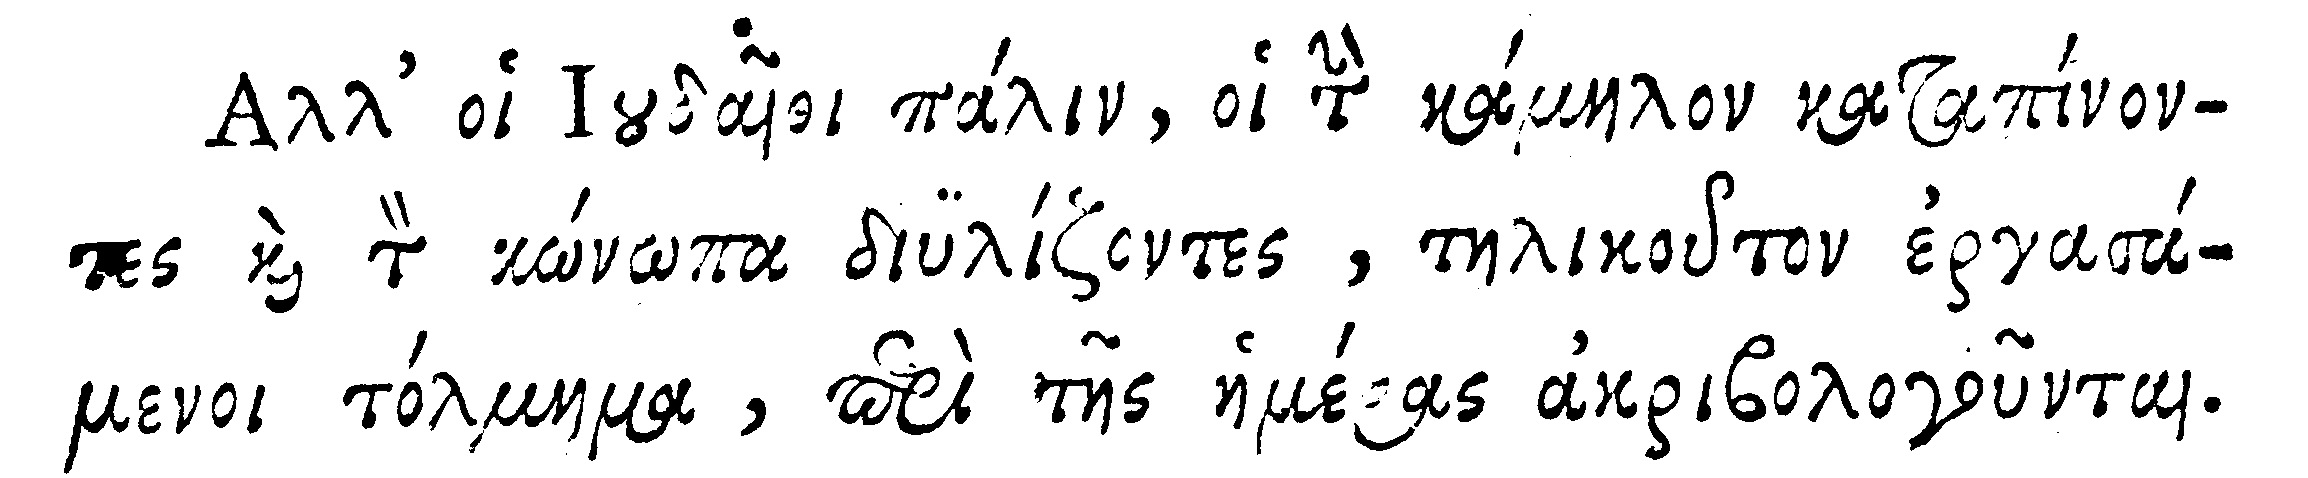 Ἀλλ' οἱ Ἰουδαῖοι πάλιν, οἱ τὴν κάμηλον καταπίνον-
τες καὶ τὸν κώνωπα διϋλίζοντες, τηλικοῦτον ἐργασά-
μενοι τόλμημα, περὶ τῆς ἡμέρας ἀκριβολογοῦνται.